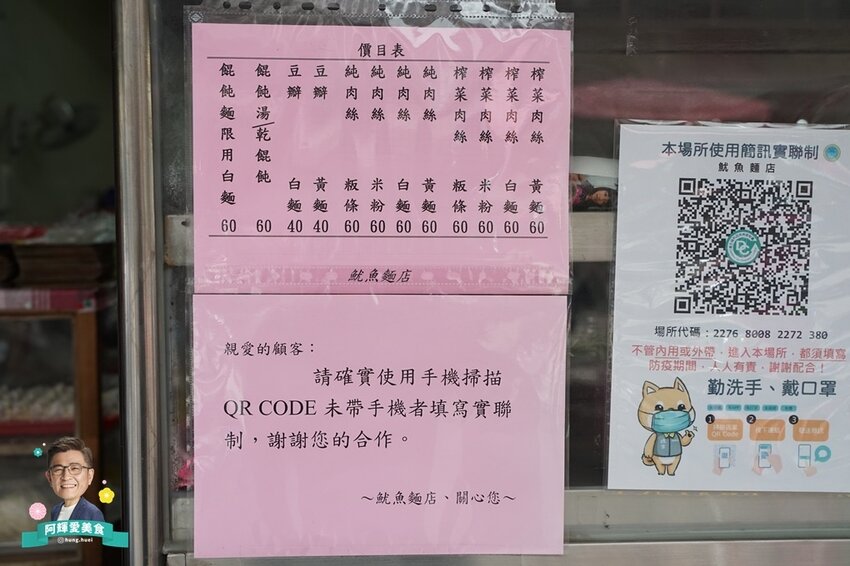 價目表
榨菜肉絲 黃麵 60
榨菜肉絲 白麵 60
榨菜肉絲 米粉 60
榨菜肉絲 粄條 60
純肉絲 黃麵 60
純肉絲 白麵 60
純肉絲 米粉 60
純肉絲 粄條 60
豆瓣 黃麵 40
豆瓣 白麵 40
餛飩湯/乾餛飩 60
餛飩麵限用白麵 60
魷魚麵店
親愛的顧客：
請確實使用手機掃描
QR CODE 未帶手機者填寫實聯
制，謝謝您的合作。
～魷魚麵店、關心您～
本場所使用簡訊實聯制
魷魚麵店
場所代碼：2276 8008 2272 380
不管內用或外帶，進入本場所，都須填寫
防疫期間，人人有責，謝謝配合！
勤洗手、戴口罩
1
2
3
QR Code
阿輝愛美食
hung.huei